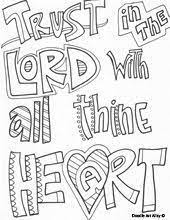 TRUST in THE
LORD with
all thine
HEART
Doodle Art Alley ©